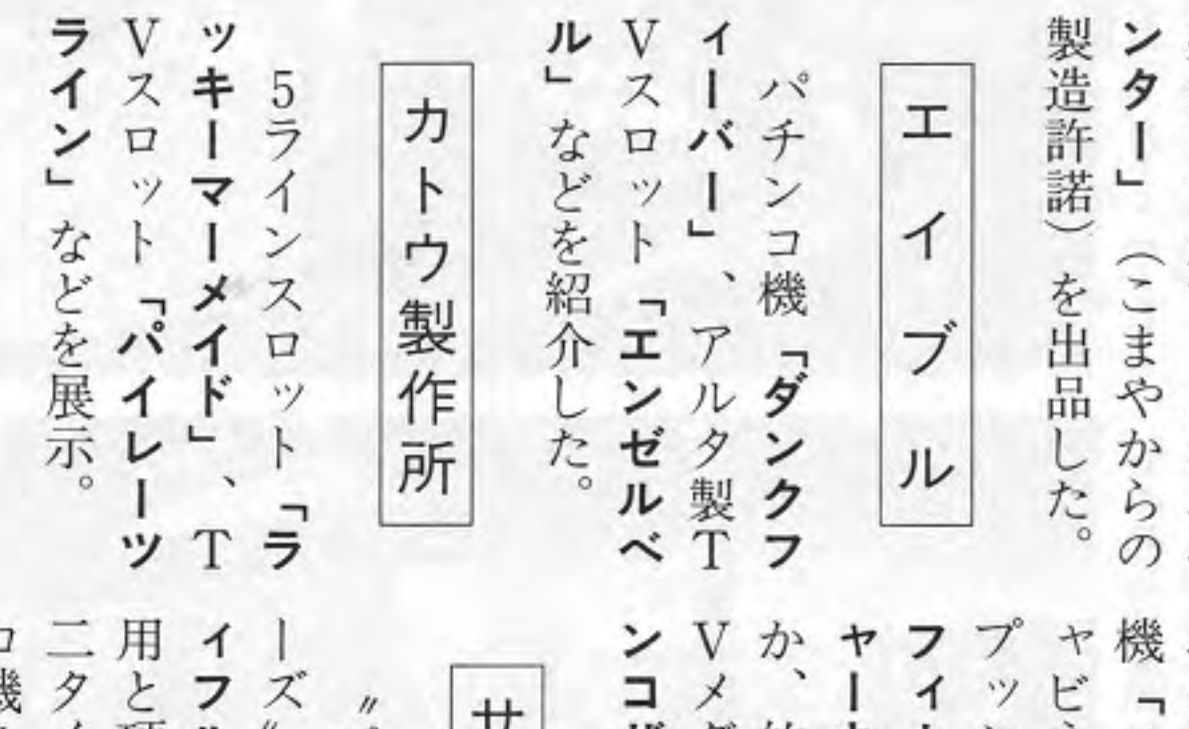 ンター」（こまやからの
製造許諾）を出品した。
エイブル
パチンコ機「ダンクフ
ィーバー」、アルタ製T
Vスロット「エンゼルベ
ル」などを紹介した。
カトウ製作所
5ラインスロット「ラ
ッキーマーメイド」、T
Vスロット「パイレーツ
ライン」などを展示。
機「
ャビ
プッ
フィ
ャー
か、
Vメダ
ンコ
サ
ーズ
ィフ
用と
二タ